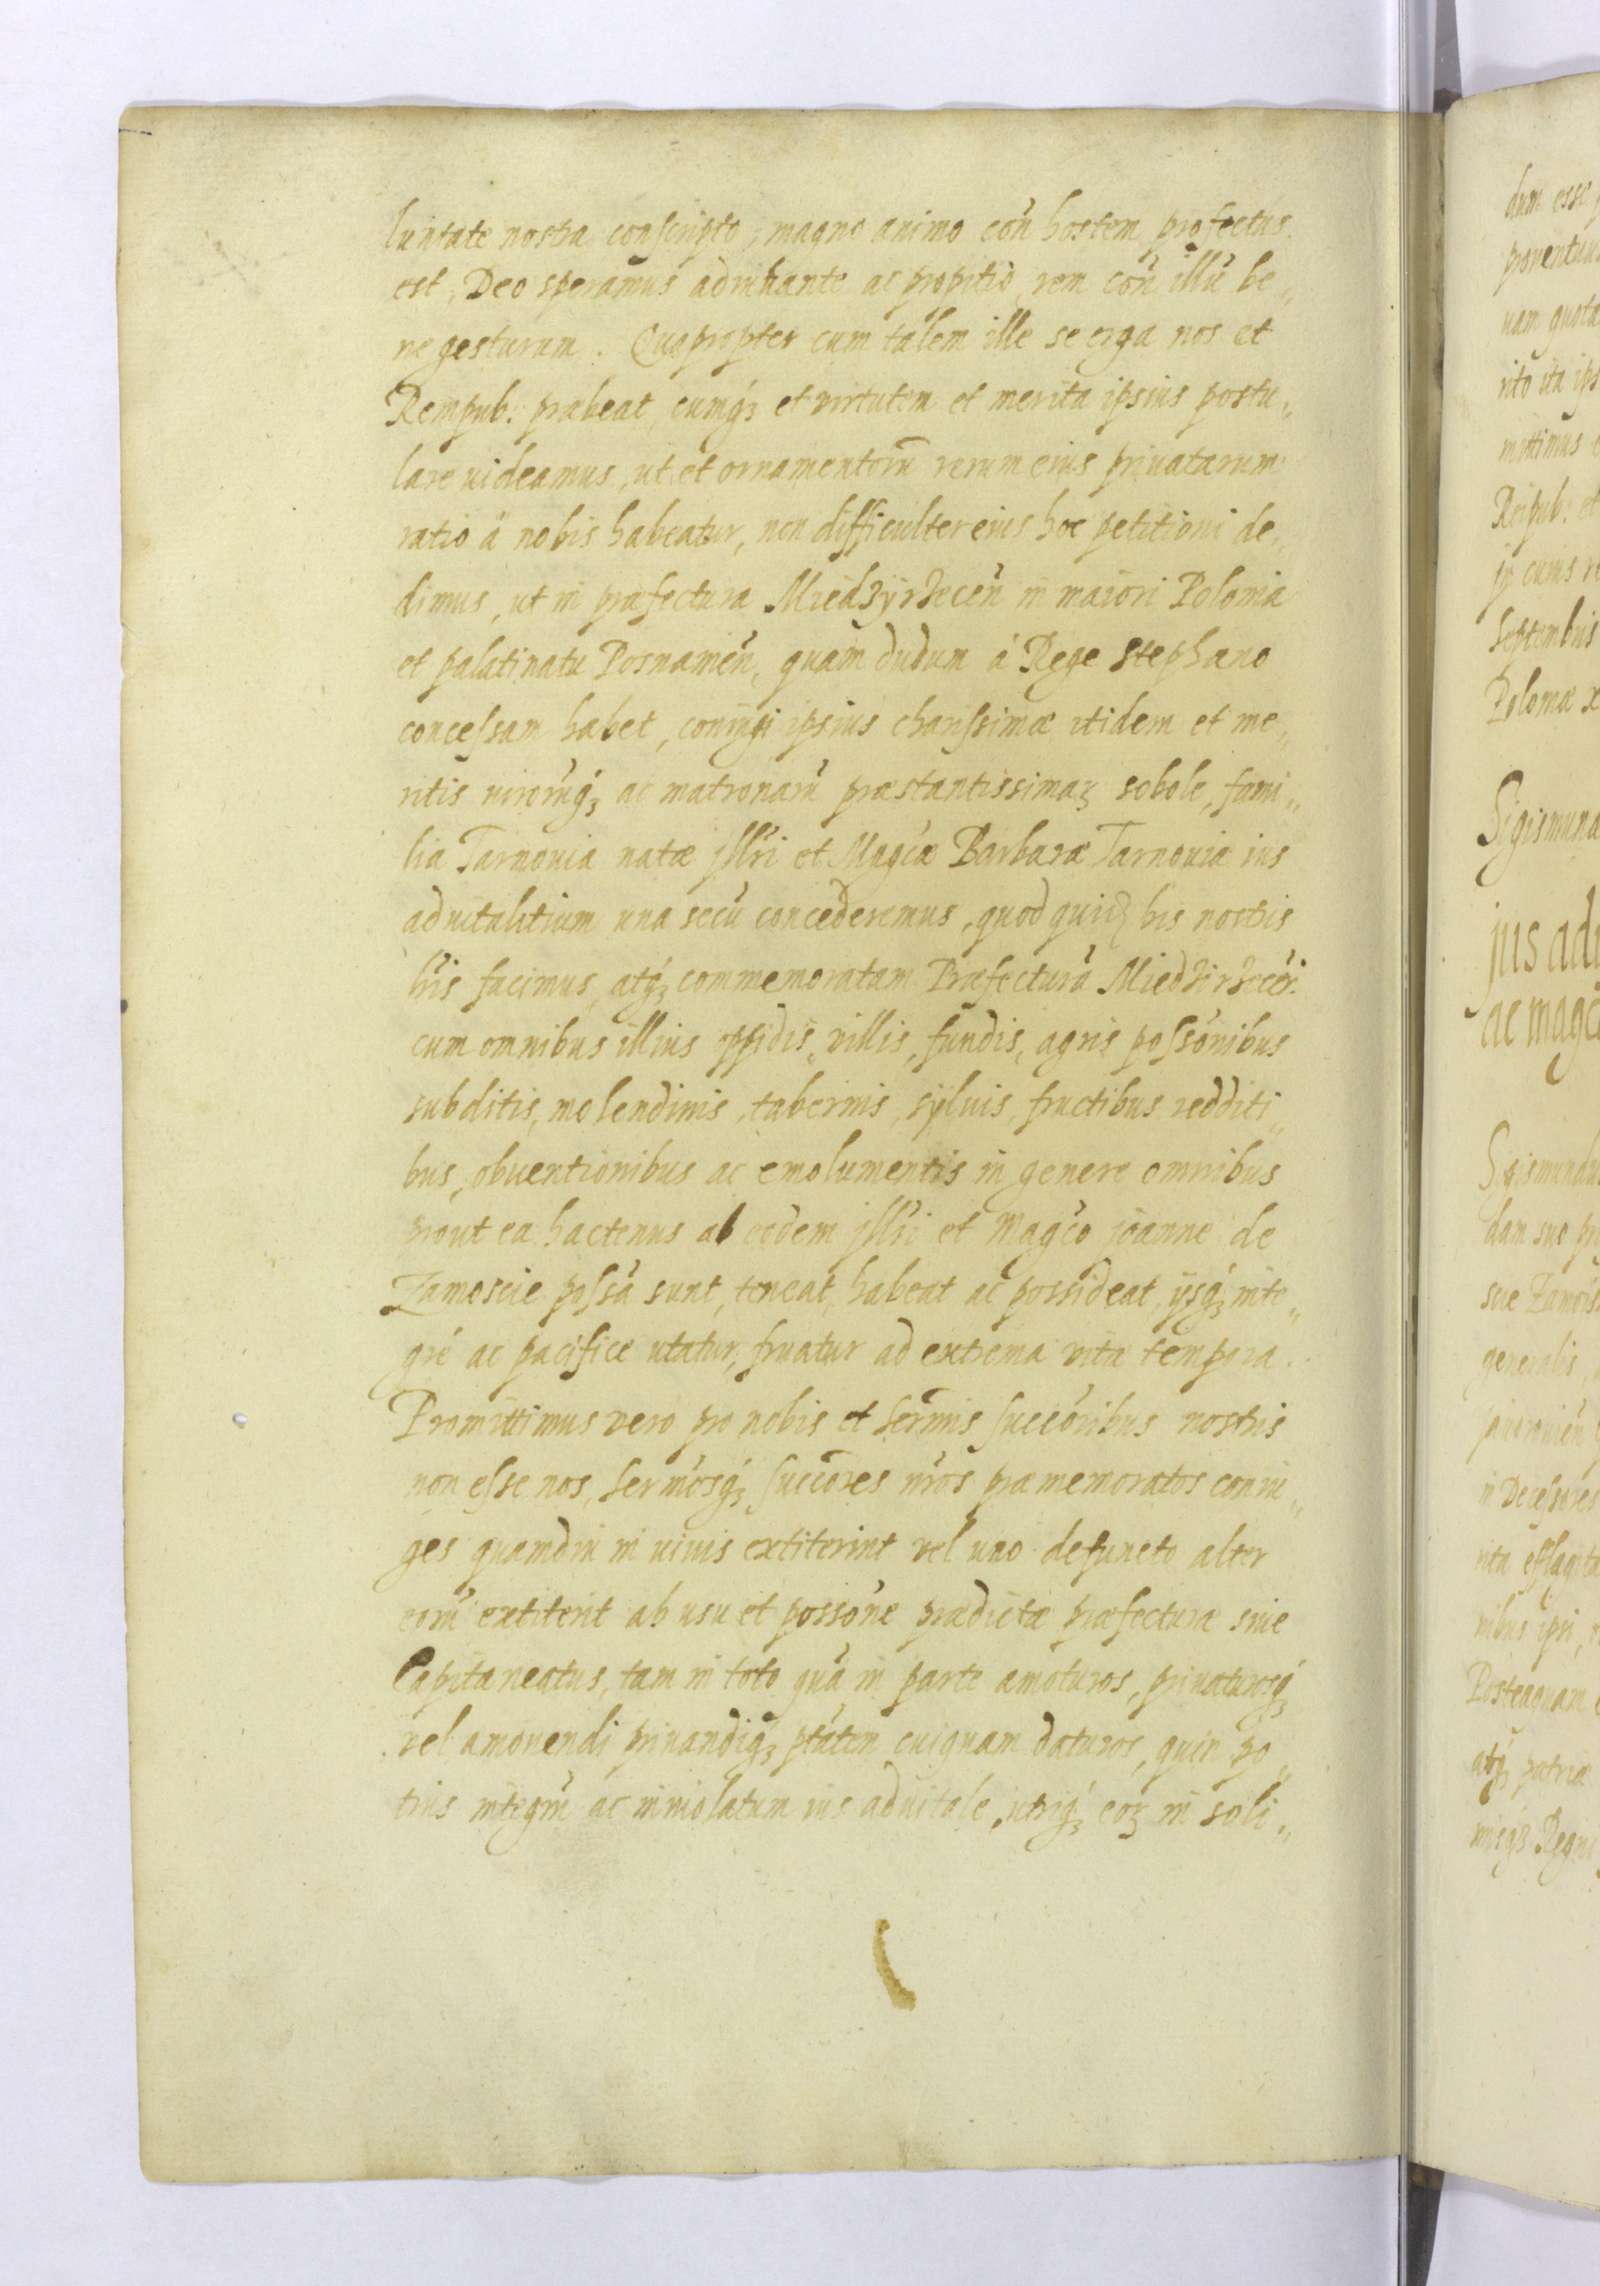 luntate nostra conscripto, magno animo coñ hostem profectus
est, Deo speramus adiuuante ac propitio rem coñ illũ be„
ne gesturum. Quapropter cum talem ille se erga nos et
Rempub. præbeat, cumq́ꝫ et virtutem et merita ipsius postu„
lare uideamus, ut et ornamentorũ rerum eius priuatarum
ratio à nobis habeatur, non difficulter eius hoc petitioni de„
dimus, ut in præfectura Miedzyrzeceñ in maiori Polonia
et palatinatu Posnanieñ, quam dudum à Rege Stephano
concessam habet, coniugi ipsius charissimæ itidem et me„
ritis uirorũq́ꝫ ac matronarũ præstantissimaꝝ sobole, fami„
lia Tarnouia natæ Jllri et Magcæ Barbaræ Tarnouiæ ius
aduitalitium una secũ concederemus, quod quidẽ his nostris
lris facimus, atq́ꝫ commemoratam Præfecturã Miedzirzeceñ.
cum omnibus illius oppidis, villis, fundis, agris possõnibus
subditis, molendinis, tabernis, syluis, fructibus redditi„
bus, obuentionibus ac emolumentis in genere omnibus
prout ea hactenus ab eodem Jllri et Magco Joanne de
Zamoscie possa sunt, teneat, habeat ac possideat, ijsq́ꝫ inte„
gré ac pacifice utatur, fruatur ad extrema vitæ tempora.
Promittimus vero pro nobis et Sermis succõribus nostris
non esse nos, Sermosq́ꝫ succores nros præmemoratos coniu„
ges quamdiu in uiuis extiterint vel uno defuncto alter
eorũ extiterit ab usu et possõne prædictæ præfecturæ siue
Capitaneatus, tam in toto quã in parte amoturos, priuaturosq́ꝫ
vel amouendi priuandiq́ꝫ ptãtem cuiquam daturos, quin po„
tius integrũ ac inuiolatum ius aduitale, utriq́ꝫ eoꝝ in soli„
dum esse
uam quota
rito ita ips
mittimus
Reipub. et
Septembris
Poloniæ
Sigismund
jus adu
ac magc
Sigismundus
dam suo
suæ Zamois
generalis
rita efflagita
nibus ipsi,
Posteaquam
atq́ꝫ patriæ
Regni